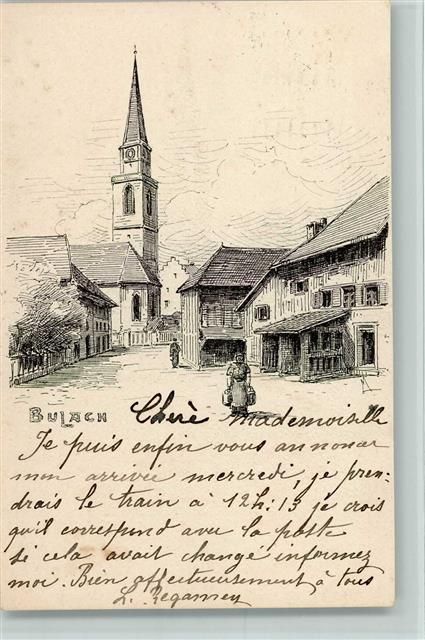 BULACH
Cherè Mademoiselle
Je puis enfin vous annoncer
mon arrivée mercredi, je pren-
drais le train à 12h:13 je crois
qu'il correspond avec la poste
si cela avait changé informez
moi. Bien affectueusement à tous
L. Regamey